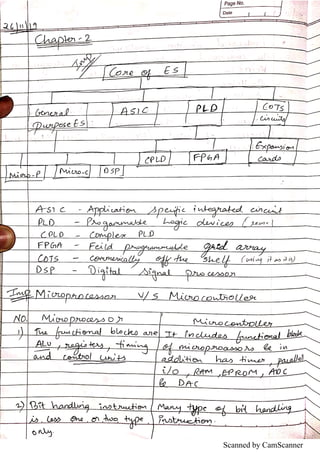 Page No.
Date
26/11/19
Chapter - 2
Core of ES
General purpose ES
ASIC
PLD
COTS circuits
CPLD
FPGA
Expansion cards
Micro-P
Micro-C
DSP
ASIC - Application specific integrated circuit
PLD - Progammable Logic devices
CPLD - Complex PLD
FPGA - Feild programmable grid array
COTS - commercially off the shelf (using it as it is)
DSP - Digital signal processor
Imp Microprocessor v/s Microcontroller
NO. Microprocessor Microcontroller
1) The functional blocks are It includes functional block
ALU, registers, timing of microprocessors & in
and control units addition has timer, parallel
i/o, RAM, EPROM, ADC
& DAC
2) Bit handling instruction Many type of bit handling
is less one or two type Instruction.
only.
Scanned by CamScanner